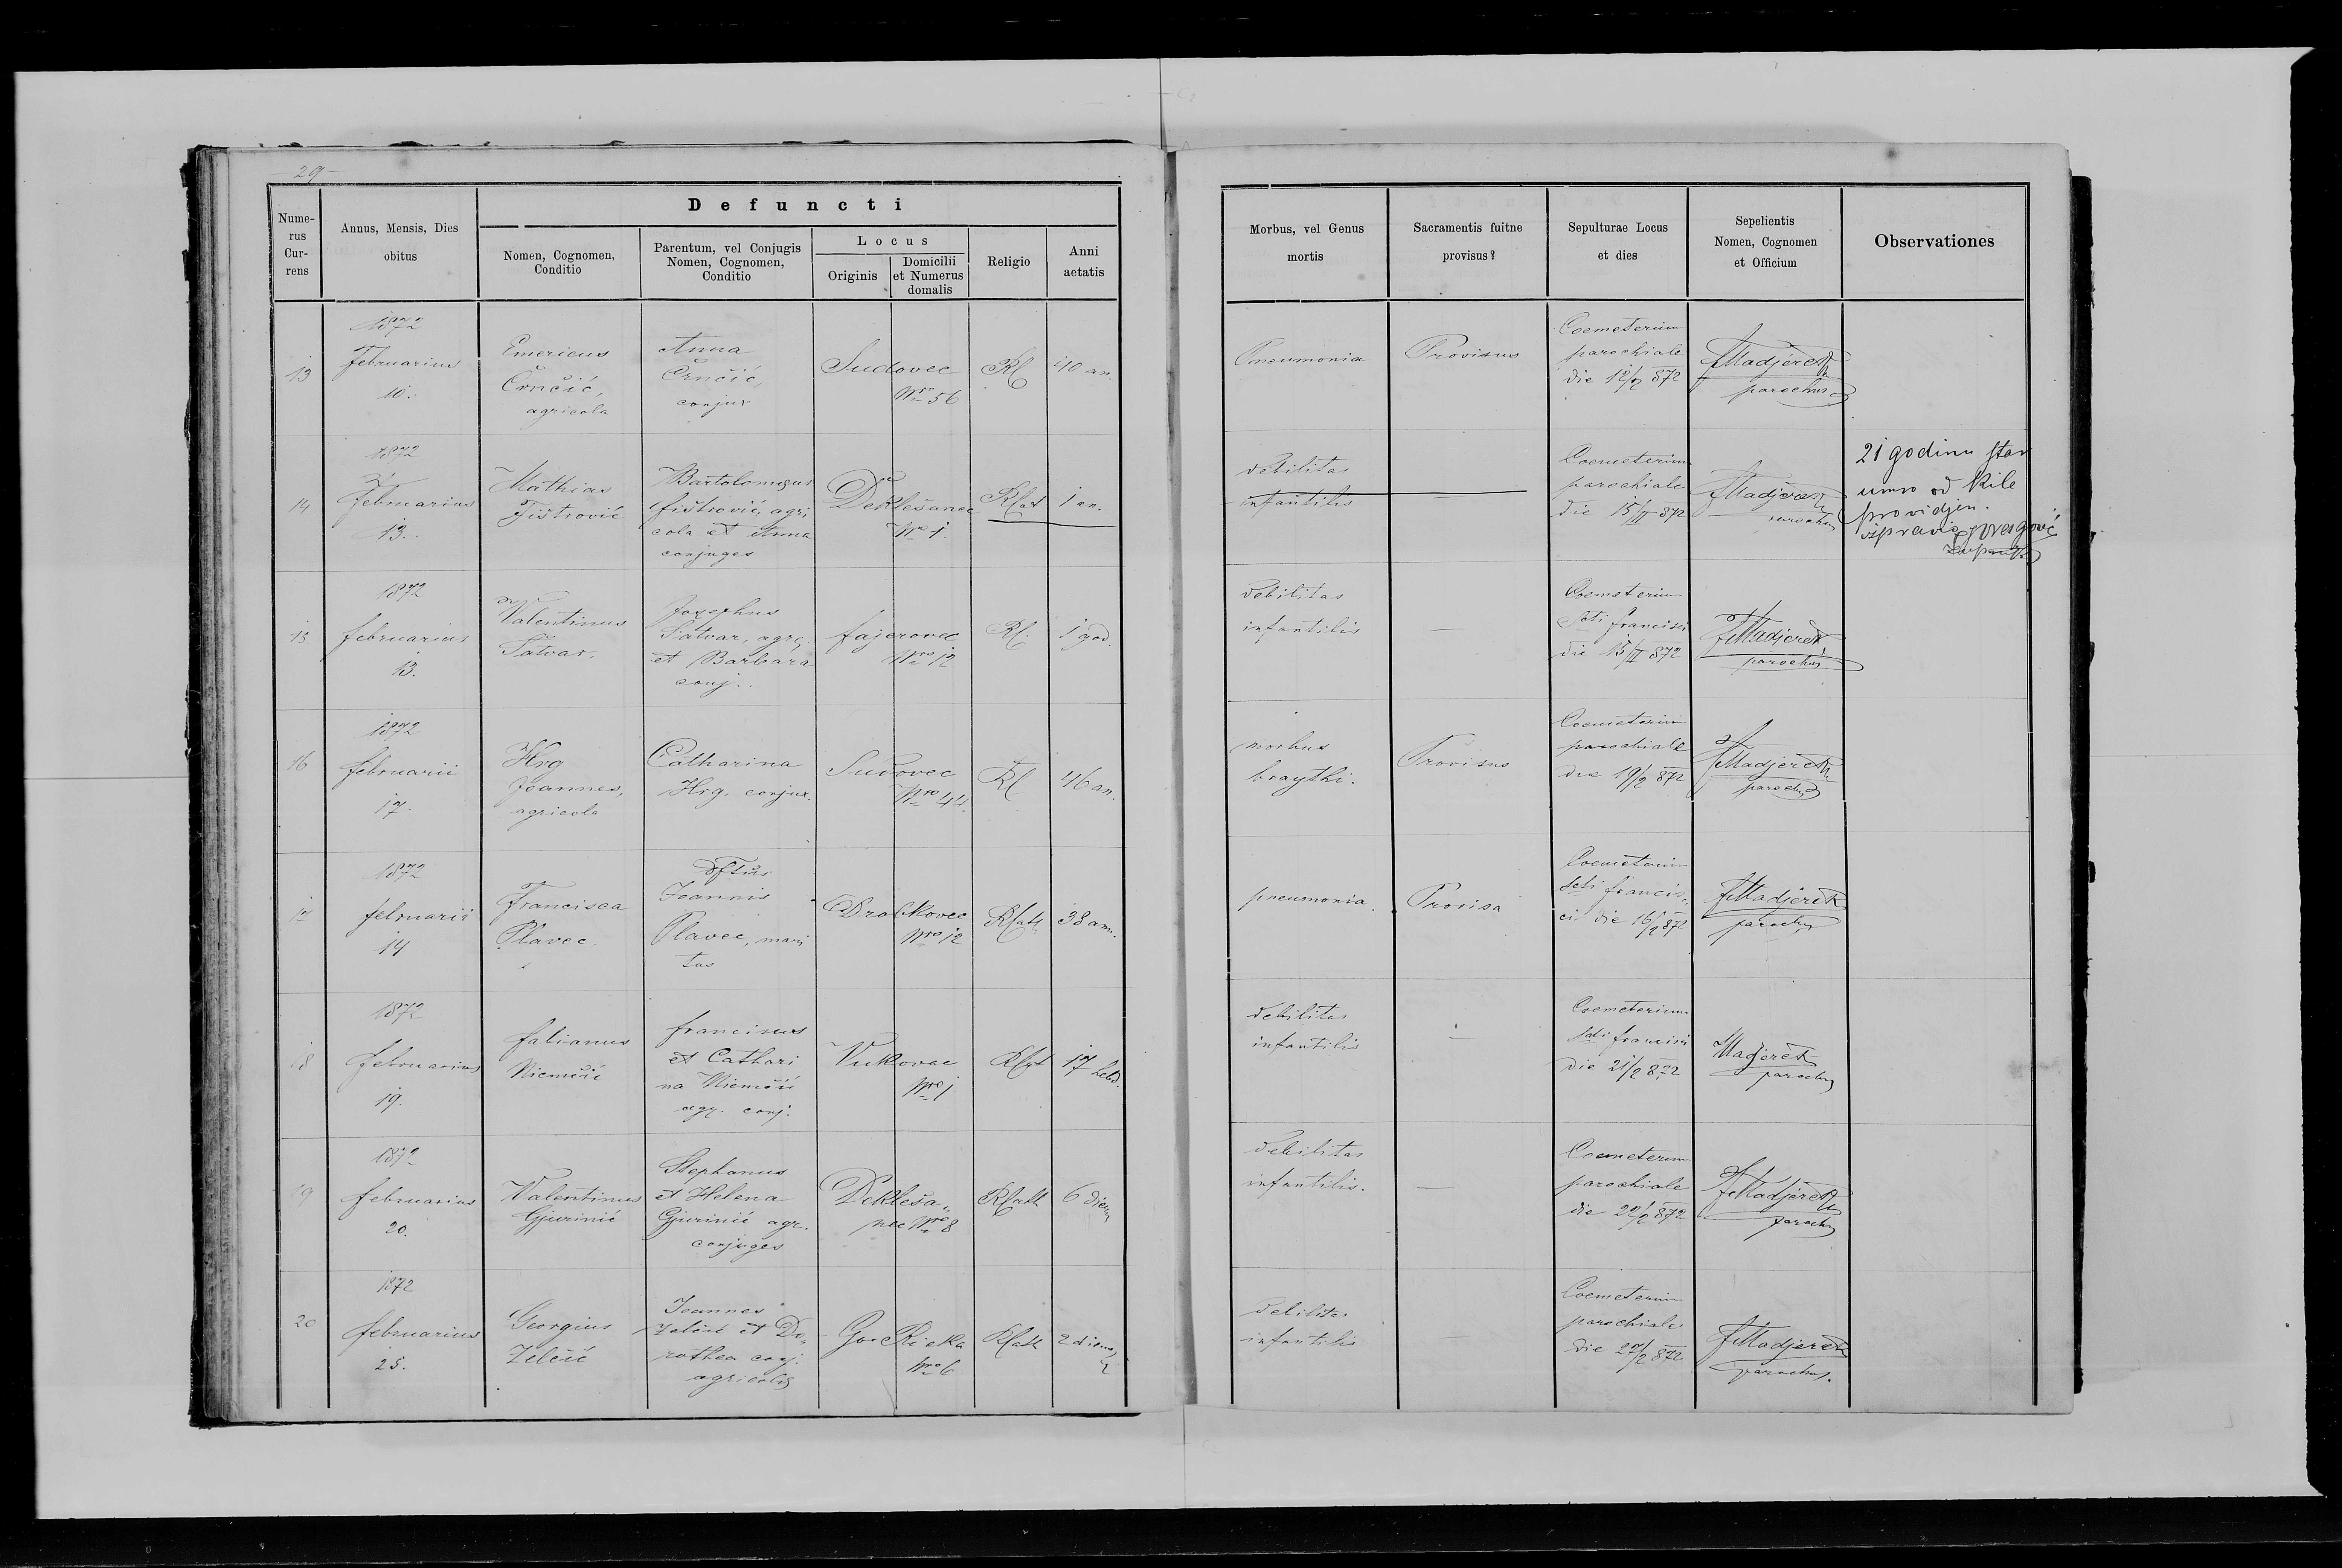 29
Defuncti
Nume-
rus
Cur-
rens
Annus, Mensis, Dies
obitus
Nomen, Cognomen,
Conditio
Parentum, vel Conjugis
Nomen, Cognomen,
Conditio
Locus
Originis
Domicilii
et Numerus
domalis
Religio
Anni
aetatis
Morbus, vel Genus
mortis
Sacramentis fuitne
provisus?
Sepulturae Locus
et dies
Sepelientis
Nomen, Cognomen
et Officium
Observationes
13
1872
Februarius
10.
Emericus
Črnčić,
agricola
Anna
Črnčić,
conjux
Sudovec
Nro 56
40 an.
Pneumonia
Provisus
Coemeterium
parochiale
die 12/2 872
FMadjerek
parochus
14
1872
Februarius
13.
Mathias
Fištrović
Bartolomeus
fištrović, agri
cola et Anna
conjuges
Deklešanec
Nro 1.
1 an.
debilitas
infantilis
—
Coemeterium
parochiale
die 15/II 872
FMadjerek
parochus
21 godinu star
umro od kile
providjen.
15
1872
februarius
13.
Valentinus
Šatvar.
Josephus
Šatvar, agrc.
et Barbara
conj.
fajerovec
Nro 12
1 god.
debilitas
infantilis
—
Coemeterium
Scti francisci
die 15/II 872
FMadjerek
parochus
16
1872
februarii
17.
Hrg
Joannes,
agricola
Catharina
Hrg. conjux.
Sudovec
Nro 44.
46 an.
morbus
braythi.
Provisus
Coemeterium
parochiale
die 19/2 872
FMadjerek
parochus
17
1872
februarii
14
Francisca
Plavec.
Joannis
Plavec, mari
tus
Drobkovec
Nro 12
38 ann.
pneumonia.
Provisa
Coemeterium
Scti francis„
ci die 16/2 872
FMadjerek
parochus
18
1872
februarius
19.
fabianus
Niemčić
franciscus
et Cathari
na Niemčić
agr. conj.
Vukovac
Nro 1
17 hebd.
debilitas
infantilis
—
Coemeterium
Scti francisci
die 21/2 872
Madjerek
parochus
19
1872
februarius
20.
Valentinus
Gjurinić
Stephanus
et Helena
Gjurinić agr.
conjuges
Dekleša„
nec Nro 8
6 dierum
debilitas
infantilis.
—
Coemeterium
parochiale
die 22/2 872
FMadjerek
parochus
20
1872
februarius
25.
Georgius
Zelčić
Joannes
Zelčić et Do„
rothea conj.
agricolæ
Gor Rieka
Nro 6
2 dierum
debilitas
infantilis
—
Coemeterium
parochiale
die 27/2 872
FMadjerek
parochus.